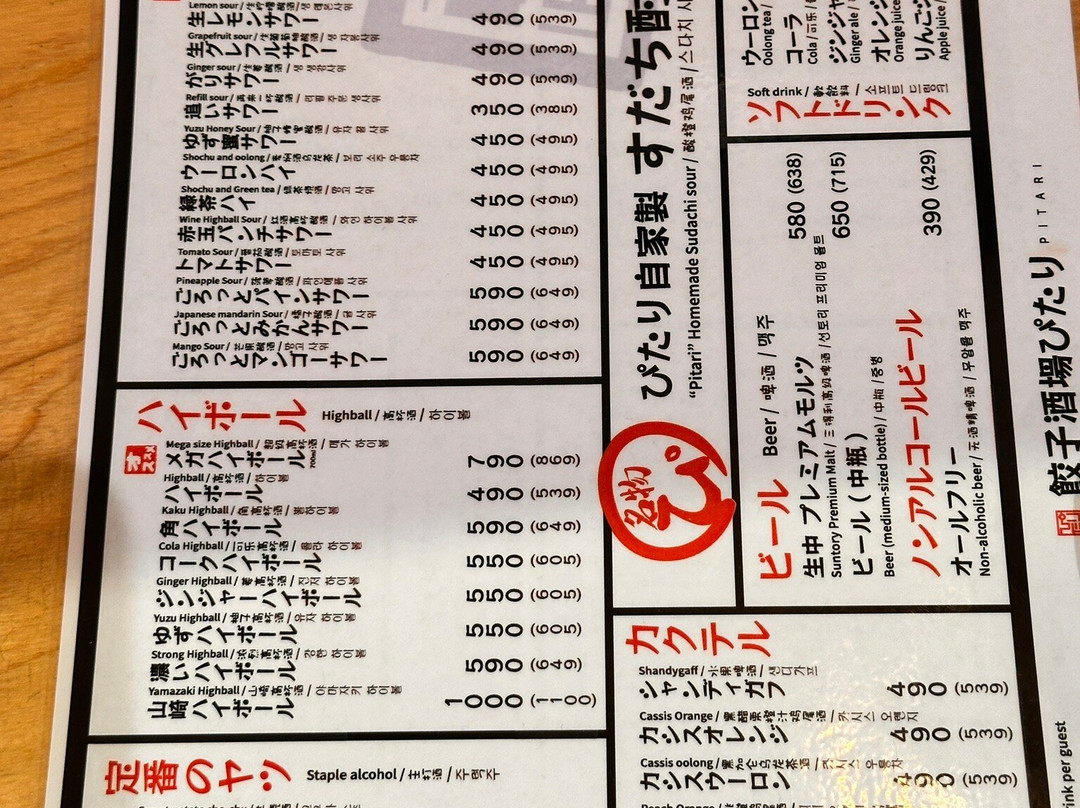 Lemon sour / 生柠檬酸酒 / 생 레몬 사워
生レモンサワー 490 (539)
生グレフルサワー 490 (539)
Ginger sour / 生姜酸酒 / 생 생강 사워
がりサワー 490 (539)
追いサワー 350 (385)
ゆず蜜サワー 450 (495)
ウーロンハイ 450 (495)
緑茶ハイ 450 (495)
赤玉パンチサワー 450 (495)
トマトサワー 450 (495)
ごろっとパインサワー 590 (649)
ごろっとみかんサワー 590 (649)
ごろっとマンゴーサワー 590 (649)
ハイボール Highball / 高杯酒 / 하이볼
オススメ
メガハイボール 700ml 790 (869)
Highball / 高杯酒 / 하이볼
ハイボール 490 (539)
Kaku Highball / 角高杯酒 / 볼하이볼
角ハイボール 590 (649)
Cola Highball / 可乐高杯酒 / 콜라 하이볼
コークハイボール 550 (605)
Ginger Highball / 姜高杯酒 / 진저 하이볼
ジンジャーハイボール 550 (605)
Yuzu Highball / 柚子高杯酒 / 유자 하이볼
ゆずハイボール 550 (605)
濃いハイボール 590 (649)
Yamazaki Highball / 山崎高杯酒 / 야마자키 하이볼
山崎ハイボール 1000 (1100)
定番のヤツ Staple alcohol / 主打酒 /
ぴたり自家製 すだち酎
“Pitari” Homemade Sudachi sour / 酸橙鸡尾酒 / 스다치 사
名物
ぴ
ウーロン
Oolong tea /
コーラ
Cola / 可乐 /
ジンジャ
Ginger ale /
オレンジ
Orange juice
りんご
Apple juice /
Soft drink / 軟飲料 / 소프트 드링크
ソフトドリンク
ビール Beer / 啤酒 / 맥주
生中 プレミアムモルツ 580 (638)
Suntory Premium Malt / 三得利高级啤酒 / 선토리 프리미엄 몰트
ビール ( 中瓶 ) 650 (715)
Beer (medium-sized bottle) / 中瓶 / 중병
ノンアルコールビール
オールフリー 390 (429)
Non-alcoholic beer / 无酒精啤酒 / 무알콜 맥주
カクテル
Shandygaff / 水果啤酒 / 샌디가프
シャンディガフ 490 (539)
カシスオレンジ 490 (539)
カシスウーロン 490 (539)
餃子酒場ぴたり PITARI
ink per guest